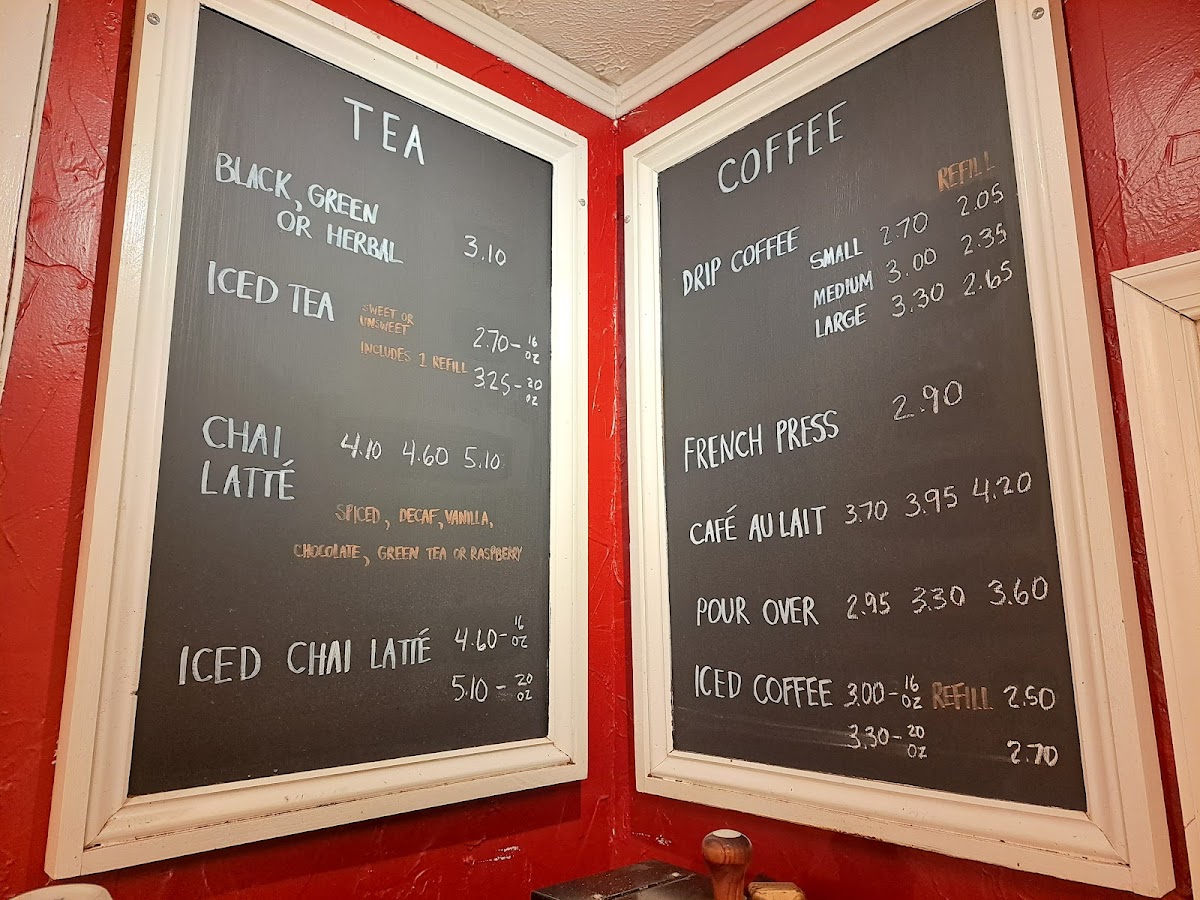 TEA
BLACK, GREEN
OR HERBAL 3.10
ICED TEA SWEET OR
UNSWEET 2.70-16 OZ
INCLUDES 1 REFILL 3.25-20 OZ
CHAI
LATTÉ 4.10 4.60 5.10
SPICED, DECAF, VANILLA,
CHOCOLATE, GREEN TEA OR RASPBERRY
ICED CHAI LATTÉ 4.60-16 OZ
5.10-20 OZ
COFFEE
REFILL
DRIP COFFEE SMALL 2.70 2.05
MEDIUM 3.00 2.35
LARGE 3.30 2.65
FRENCH PRESS 2.90
CAFÉ AU LAIT 3.70 3.95 4.20
POUR OVER 2.95 3.30 3.60
ICED COFFEE 3.00-16 OZ REFILL 2.50
3.30-20 OZ 2.70